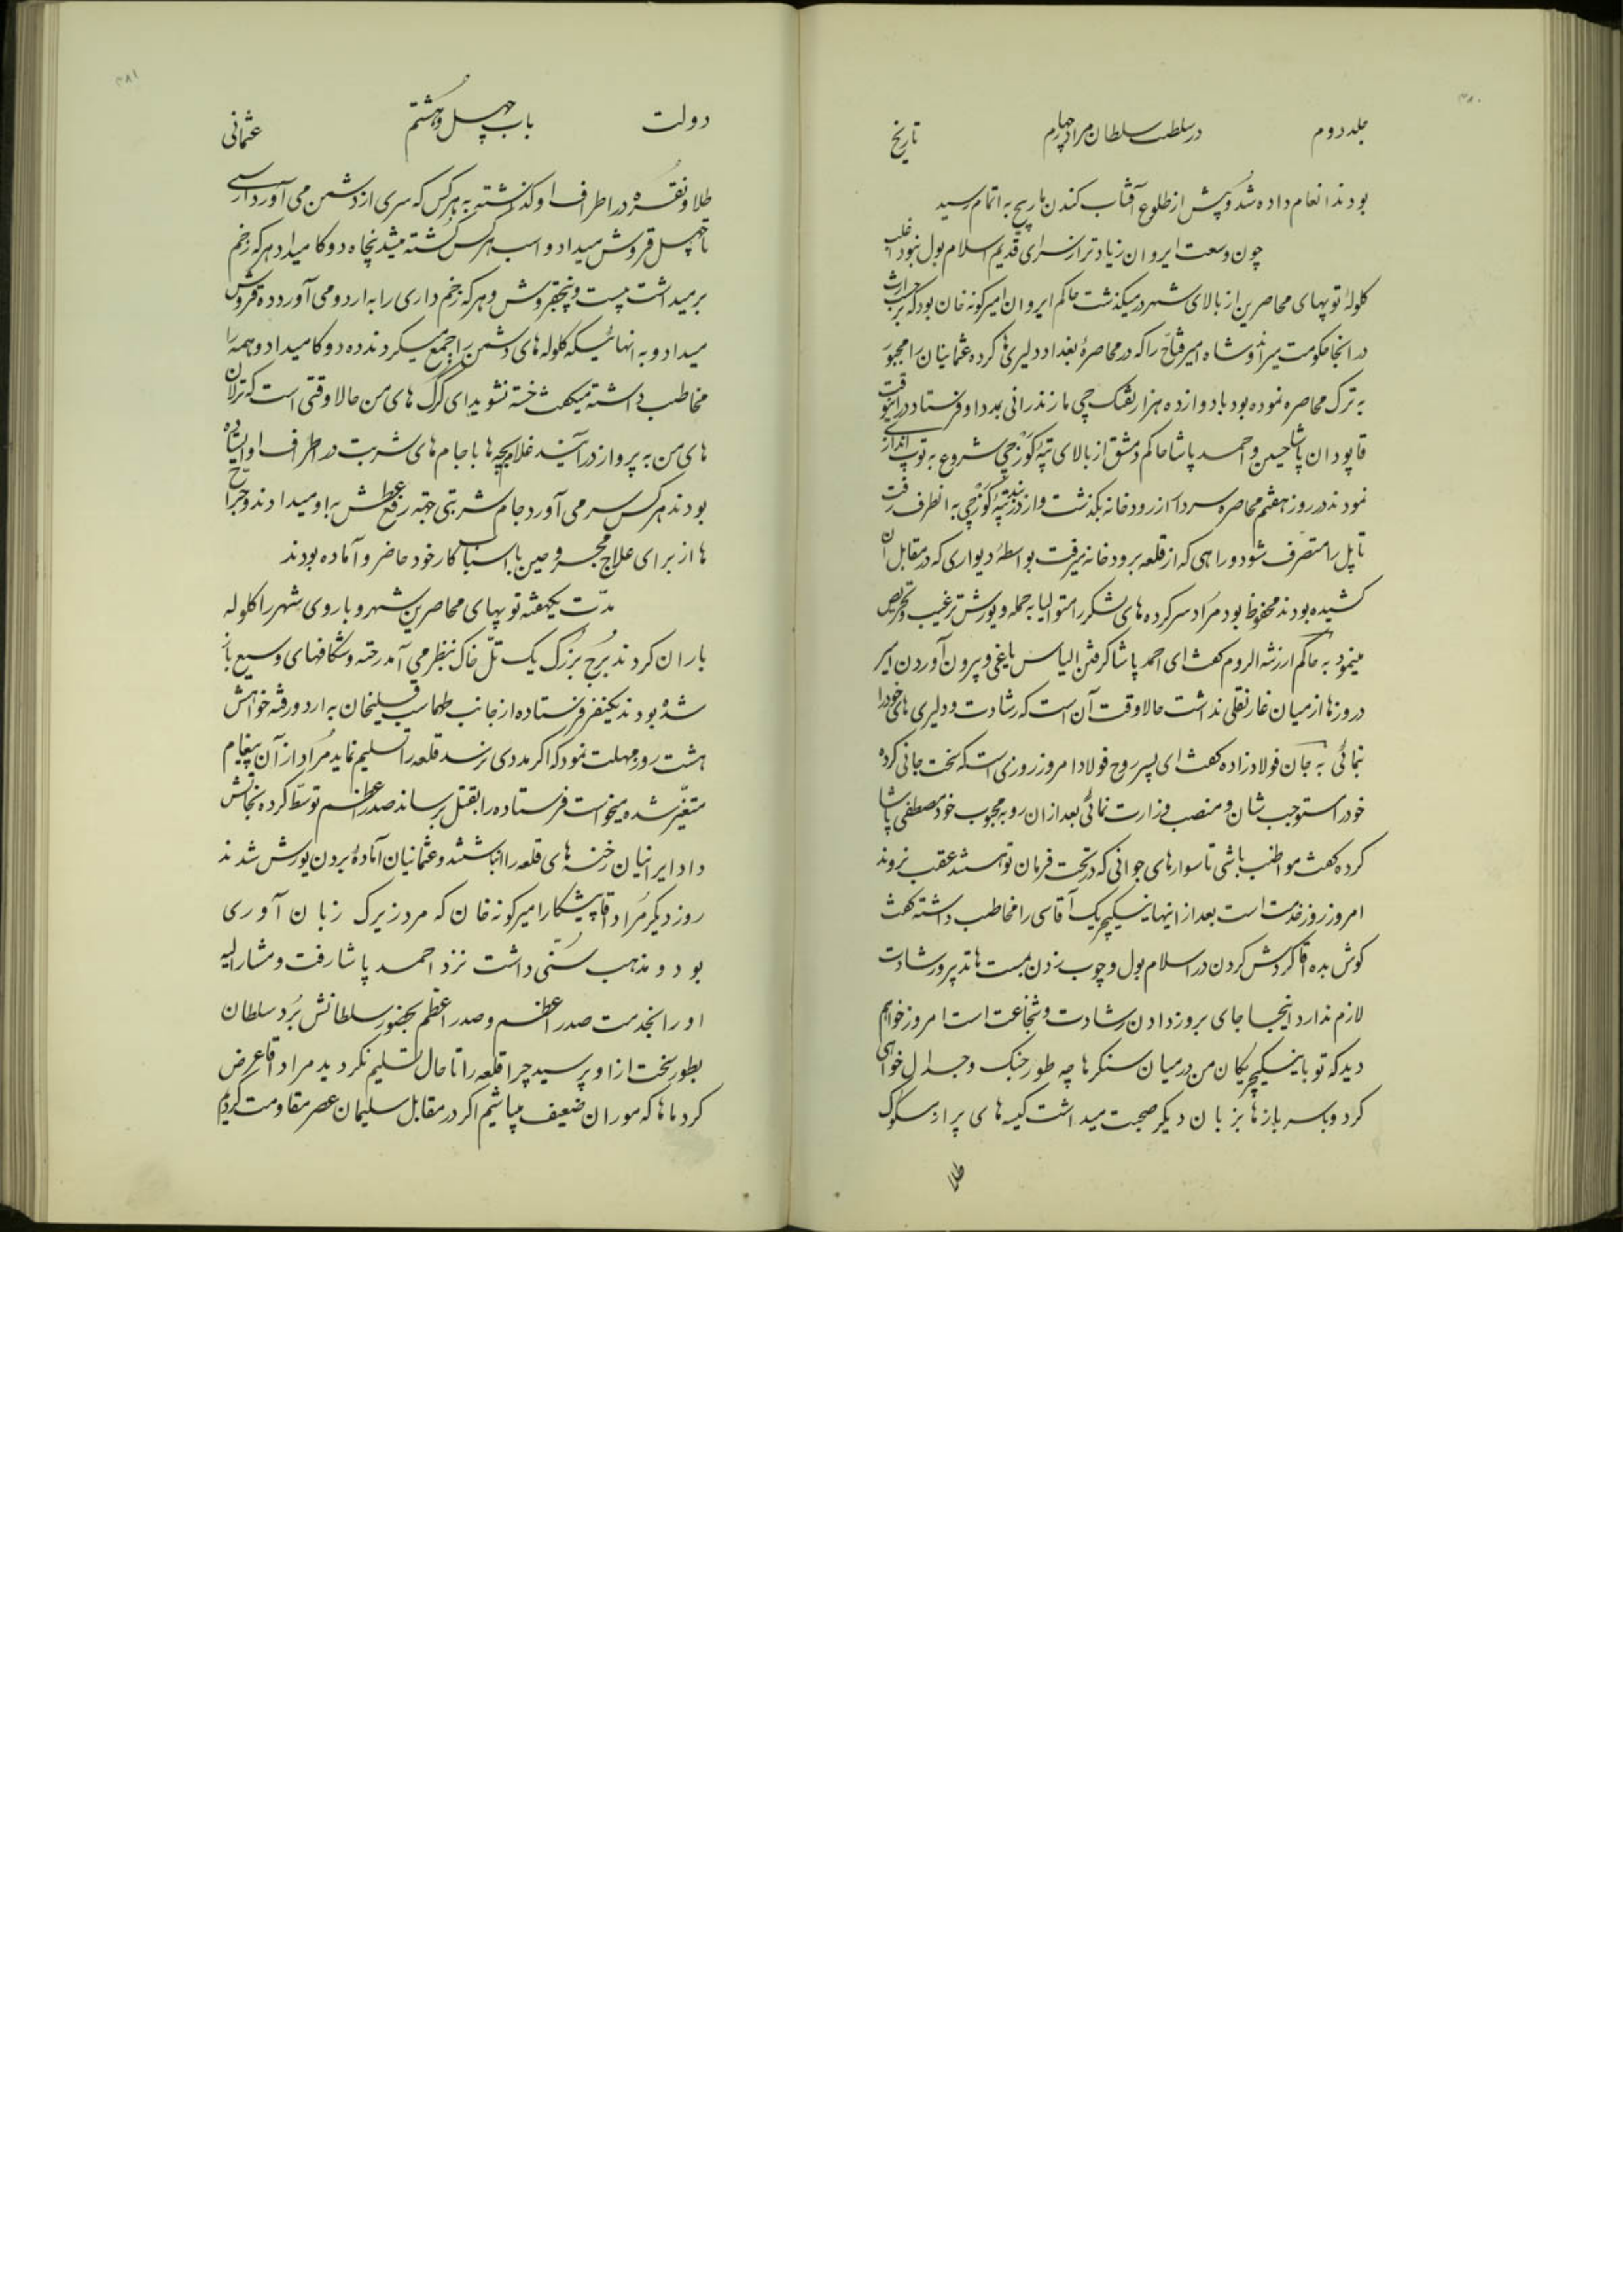 ۳۸۰
جلد دوم در سلطنت سلطان مراد چهارم تاریخ
بودند انعام داده شد و پیش از طلوع آفتاب کندن مارپیچ به اتمام رسید
چون وسعت ایروان زیادتر از سرای قدیم اسلامبول نبود اغلب
کلولهٔ توپهای محاصرین از بالای شهر در میکذشت حاکم ایروان امیرکونه خان بود که بر حسب وراثت
در انجا حکومت میراند و شاه امیر فتاح را که در محاصرهٔ بغداد دلیری ها کرده عثمانیان را مجبور
به ترک محاصره نموده بود با دوازده هزار تفنکچی مازندرانی بمدد او فرستاد در اینوقت
قاپودان پاشا حسین و احمد پاشا حاکم دمشق از بالای تپهٔ کوزچی شروع به توپ اندازی
نمودند در روز هفتم محاصره سردار از رودخانه بکذشت و از تپهٔ کوزچی به انطرف رفت
تا پل را متصرف شود و راهی که از قلعه برودخانه میرفت بواسطهٔ دیواری که در مقابل آن
کشیده بودند محفوظ بود مراد سرکرده های لشکر را متوالیا به حمله و یورش ترغیب و تحریص
مینمود به حاکم ارزنة الروم کفت ای احمد پاشا کرفتن الیاس یاغی و بیرون آوردن امیر
دروزها از میان غار نقلی نداشت حالا وقت آن است که رشادت و دلیری های خود را
بنمائی به جان فولاد زاده کفت ای پسر روح فولاد امروز روزی است که سخت جانی کرده
خود را مستوجب شان و منصب وزارت نمائی بعد از ان رو به محبوب خود مصطفی پاشا
کرده کفت مواظب باشی تا سوارهای جوانی که در تحت فرمان تو هستند عقب نروند
امروز روز خدمت است بعد از اینها ینیکیچریک آقاسی را مخاطب داشته کفت
کوش بده آقا کردش کردن در اسلامبول و چوب زدن بمست ها تدبیر و رشادت
لازم ندارد اینجا جای بروز دادن رشادت و شجاعت است امروز خواهم
دید که تو با ینیکیچریکان من در میان سنکرها چه طور جنک و جدال خواهی
کرد و با سربازها بزبان دیکر صحبت میداشت کیسه های پر از مسکوک
طلا
۳۸۱
دولت باب چهل و هشتم عثمانی
طلا و نقره در اطراف او کذاشته به هر کس که سری از دشمن می آورد از سی
تا چهل قروش میداد و اسب هر کس کشته میشد پنجاه دوکا میداد هر که زخم
بر میداشت بیست و پنجقروش و هر که زخم داری را به اردو می آورد ده قروش
میداد و به انهائیکه کلوله های دشمن را جمع میکردند ده دوکا میداد و همه را
مخاطب داشته میکفت خسته نشوید ای کرک های من حالا وقتی است که ترلان
های من به پرواز در آیند غلامبچه ها با جام های شربت در اطراف او ایستاده
بودند هر کس سر می آورد جام شربتی جهة رفع عطش به او میدادند و جراح
ها از برای علاج مجروحین با اسباب کار خود حاضر و آماده بودند
مدت یکهفته توپهای محاصرین شهر و باروی شهر را کلوله
باران کردند برج بزرک یک تل خاک بنظر می آمد رخنه و شکافهای وسیع باز
شده بودند یکنفر فرستاده از جانب طهماسب قلیخان به اردو رفته خواهش
هشت روز مهلت نمود که اکر مددی نرسد قلعه را تسلیم نماید مراد از آن پیغام
متغیر شده میخواست فرستاده را بقتل برساند صدر اعظم توسط کرده نجاتش
داد ایرانیان رخنه های قلعه را انباشتند و عثمانیان آمادهٔ بردن یورش شدند
روز دیکر مراد آقا پیشکار امیرکونه خان که مرد زیرک زبان آوری
بود و مذهب سنی داشت نزد احمد پاشا رفت و مشار الیه
او را بخدمت صدر اعظم و صدر اعظم بحضور سلطانش برد سلطان
بطور سخت از او پرسید چرا قلعه را تا حال تسلیم نکردید مراد آقا عرض
کرد ماها که موران ضعیف میباشیم اکر در مقابل سلیمان عصر مقاومت کردیم